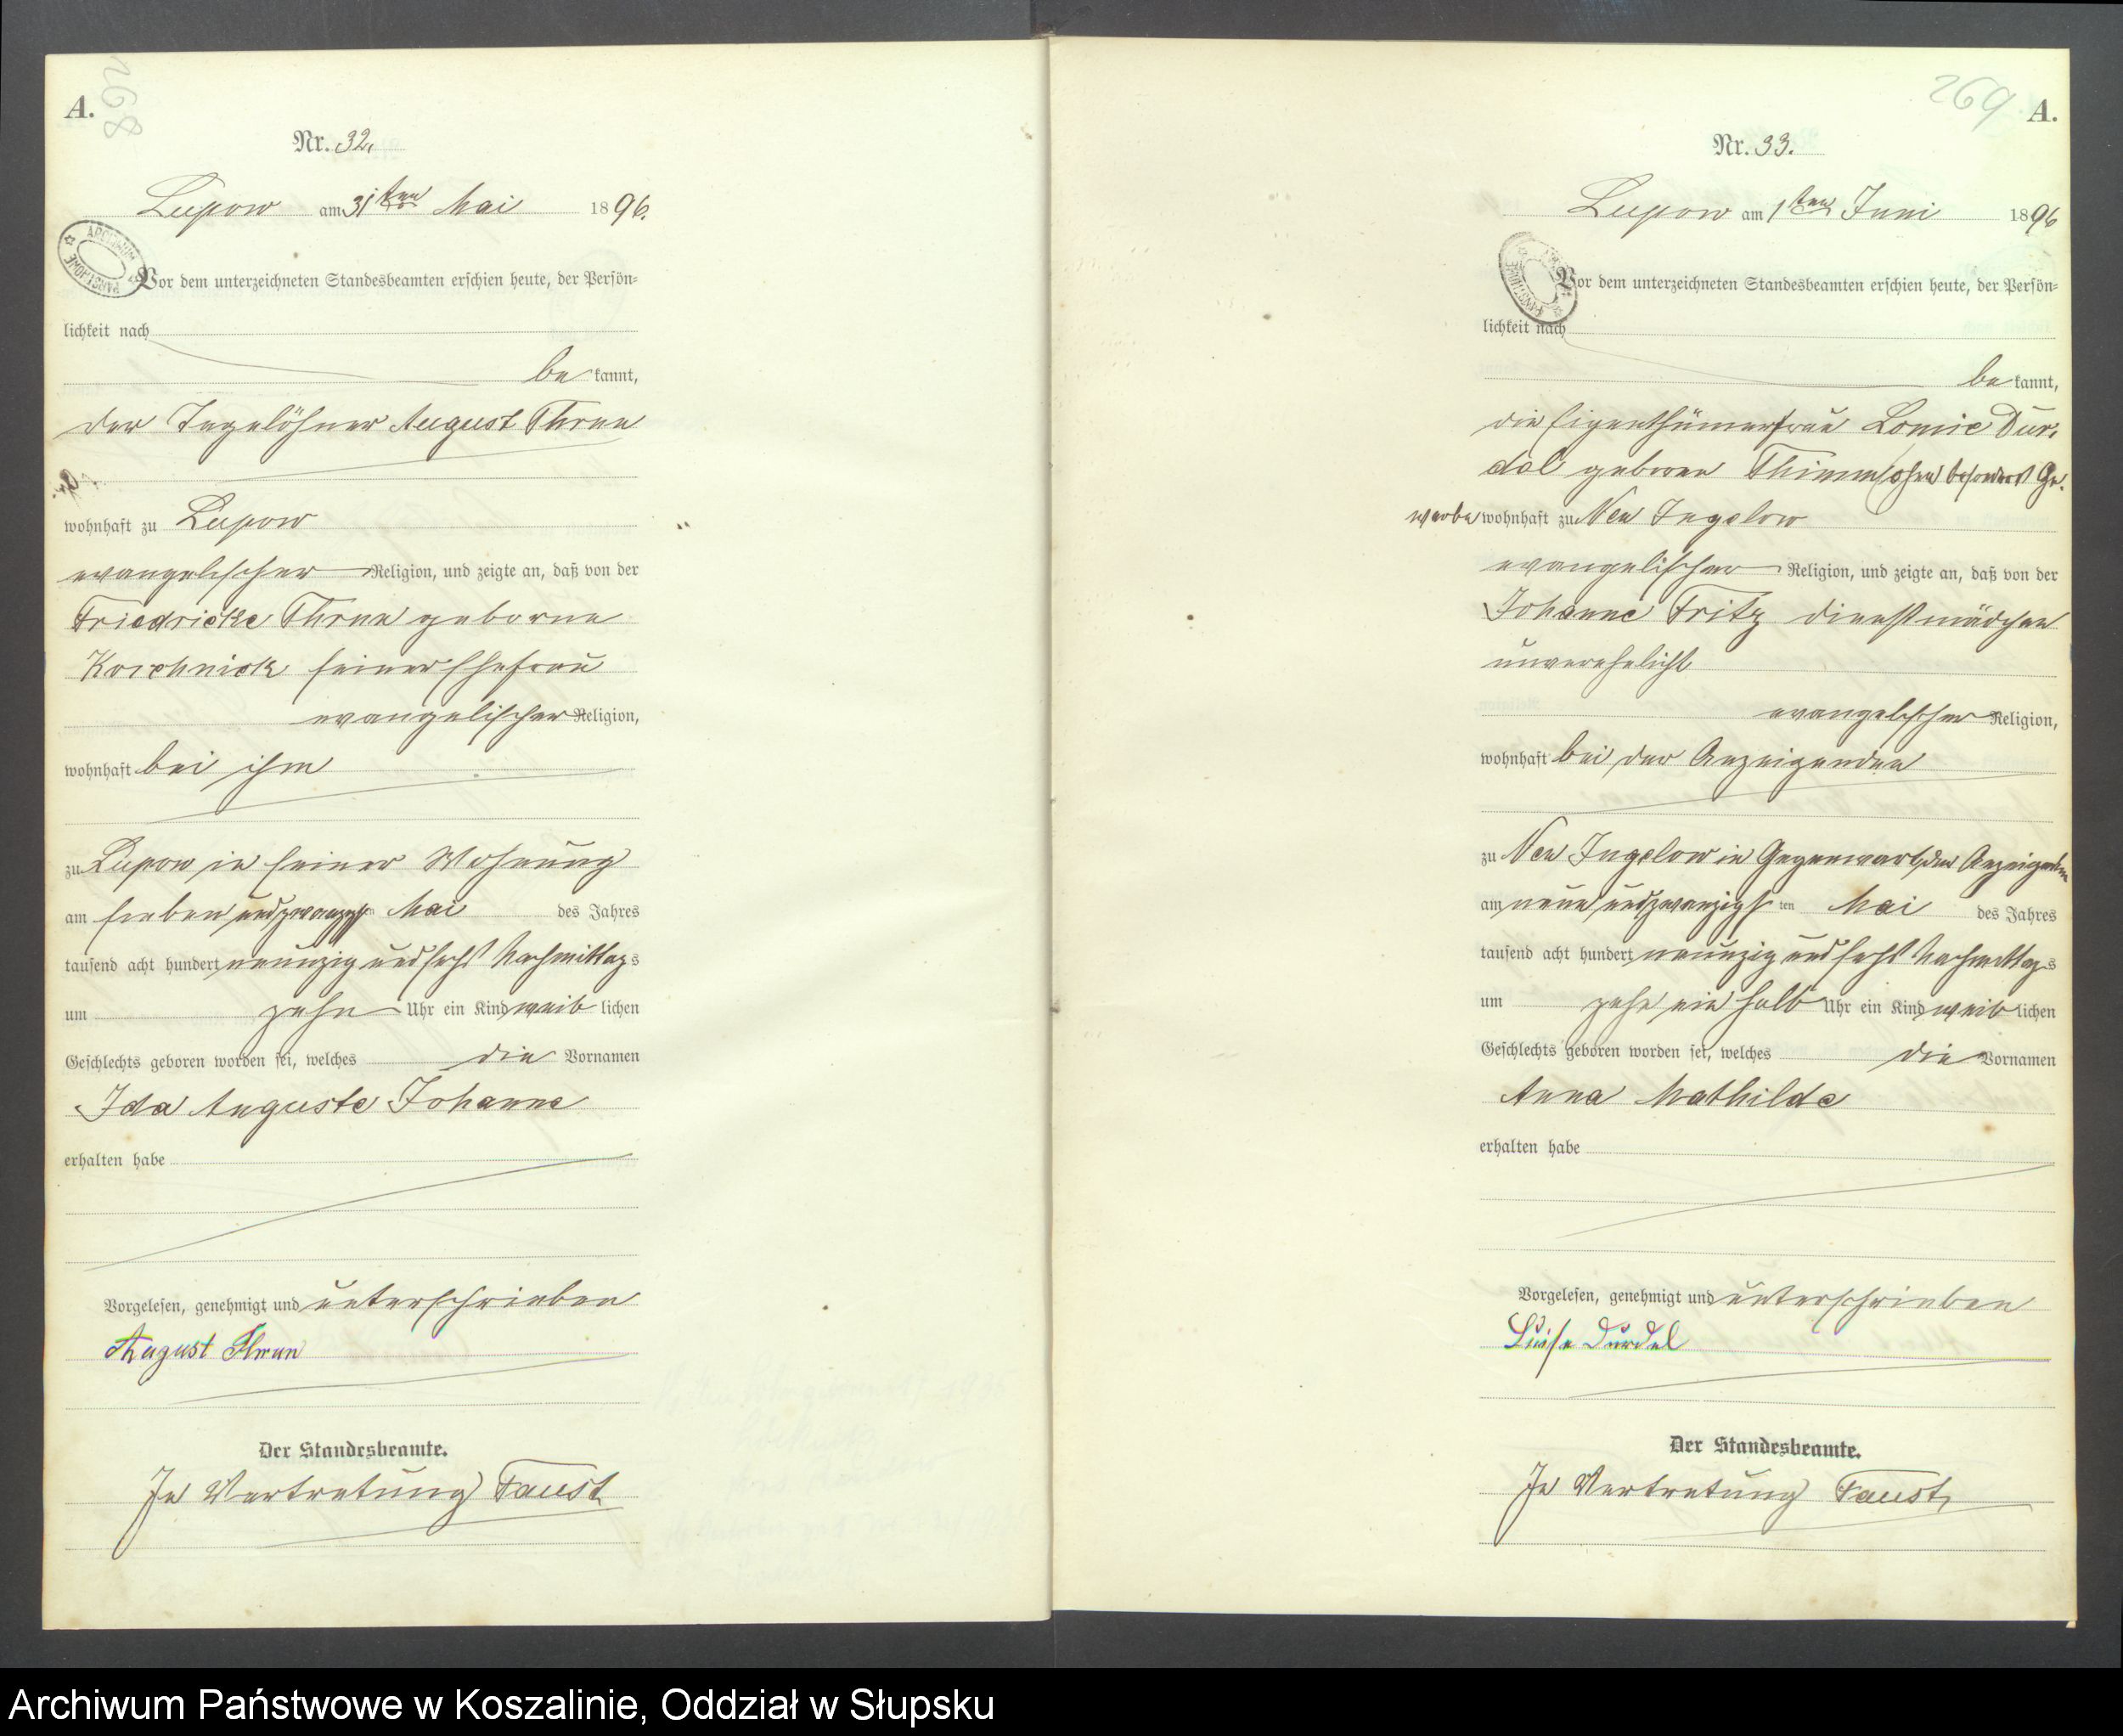 A.
268
Nr. 32.
Lupow am 31ten Mai 1896.
Vor dem unterzeichneten Standesbeamten erschien heute, der Persön-
lichkeit nach
be kannt,
der Tagelöhner August Thrun
wohnhaft zu Lupow
evangelischer Religion, und zeigte an, daß von der
Friedricke Thrun geborne
seiner Ehefrau
evangelischer Religion,
wohnhaft bei ihm
zu Lupow in seiner Wohnung
am sieben und zwanzigsten Mai des Jahres
tausend acht hundert neunzig und sechs Nachmittags
um zehn Uhr ein Kind weiblichen
Geschlechts geboren worden sei, welches die Vornamen
Ida Auguste Johanne
erhalten habe
Vorgelesen, genehmigt und unterschrieben
August Thrun
Der Standesbeamte.
In Vertretung Faust
269
A.
Nr. 33.
Lupow am 1ten Juni 1896
Vor dem unterzeichneten Standesbeamten erschien heute, der Persön-
lichkeit nach
be kannt,
die Eigenthümerfrau Louise Dur-
del geboren Thimm ohne besonders Ge-
werbe wohnhaft zu Neu Jugelow
evangelischer Religion, und zeigte an, daß von der
Johanne Fritz Dienstmädchen
unverehelicht
evangelischer Religion,
wohnhaft bei der Anzeigenden
zu Neu Jugelow in Gegenwart der Anzeigenden
am neun und zwanzigsten Mai des Jahres
tausend acht hundert neunzig und sechs Nachmittags
um zehn ein halb Uhr ein Kind weiblichen
Geschlechts geboren worden sei, welches die Vornamen
Anna Mathilde
erhalten habe
Vorgelesen, genehmigt und unterschrieben
Luise Durdel
Der Standesbeamte.
In Vertretung Faust
Archiwum Państwowe w Koszalinie, Oddział w Słupsku